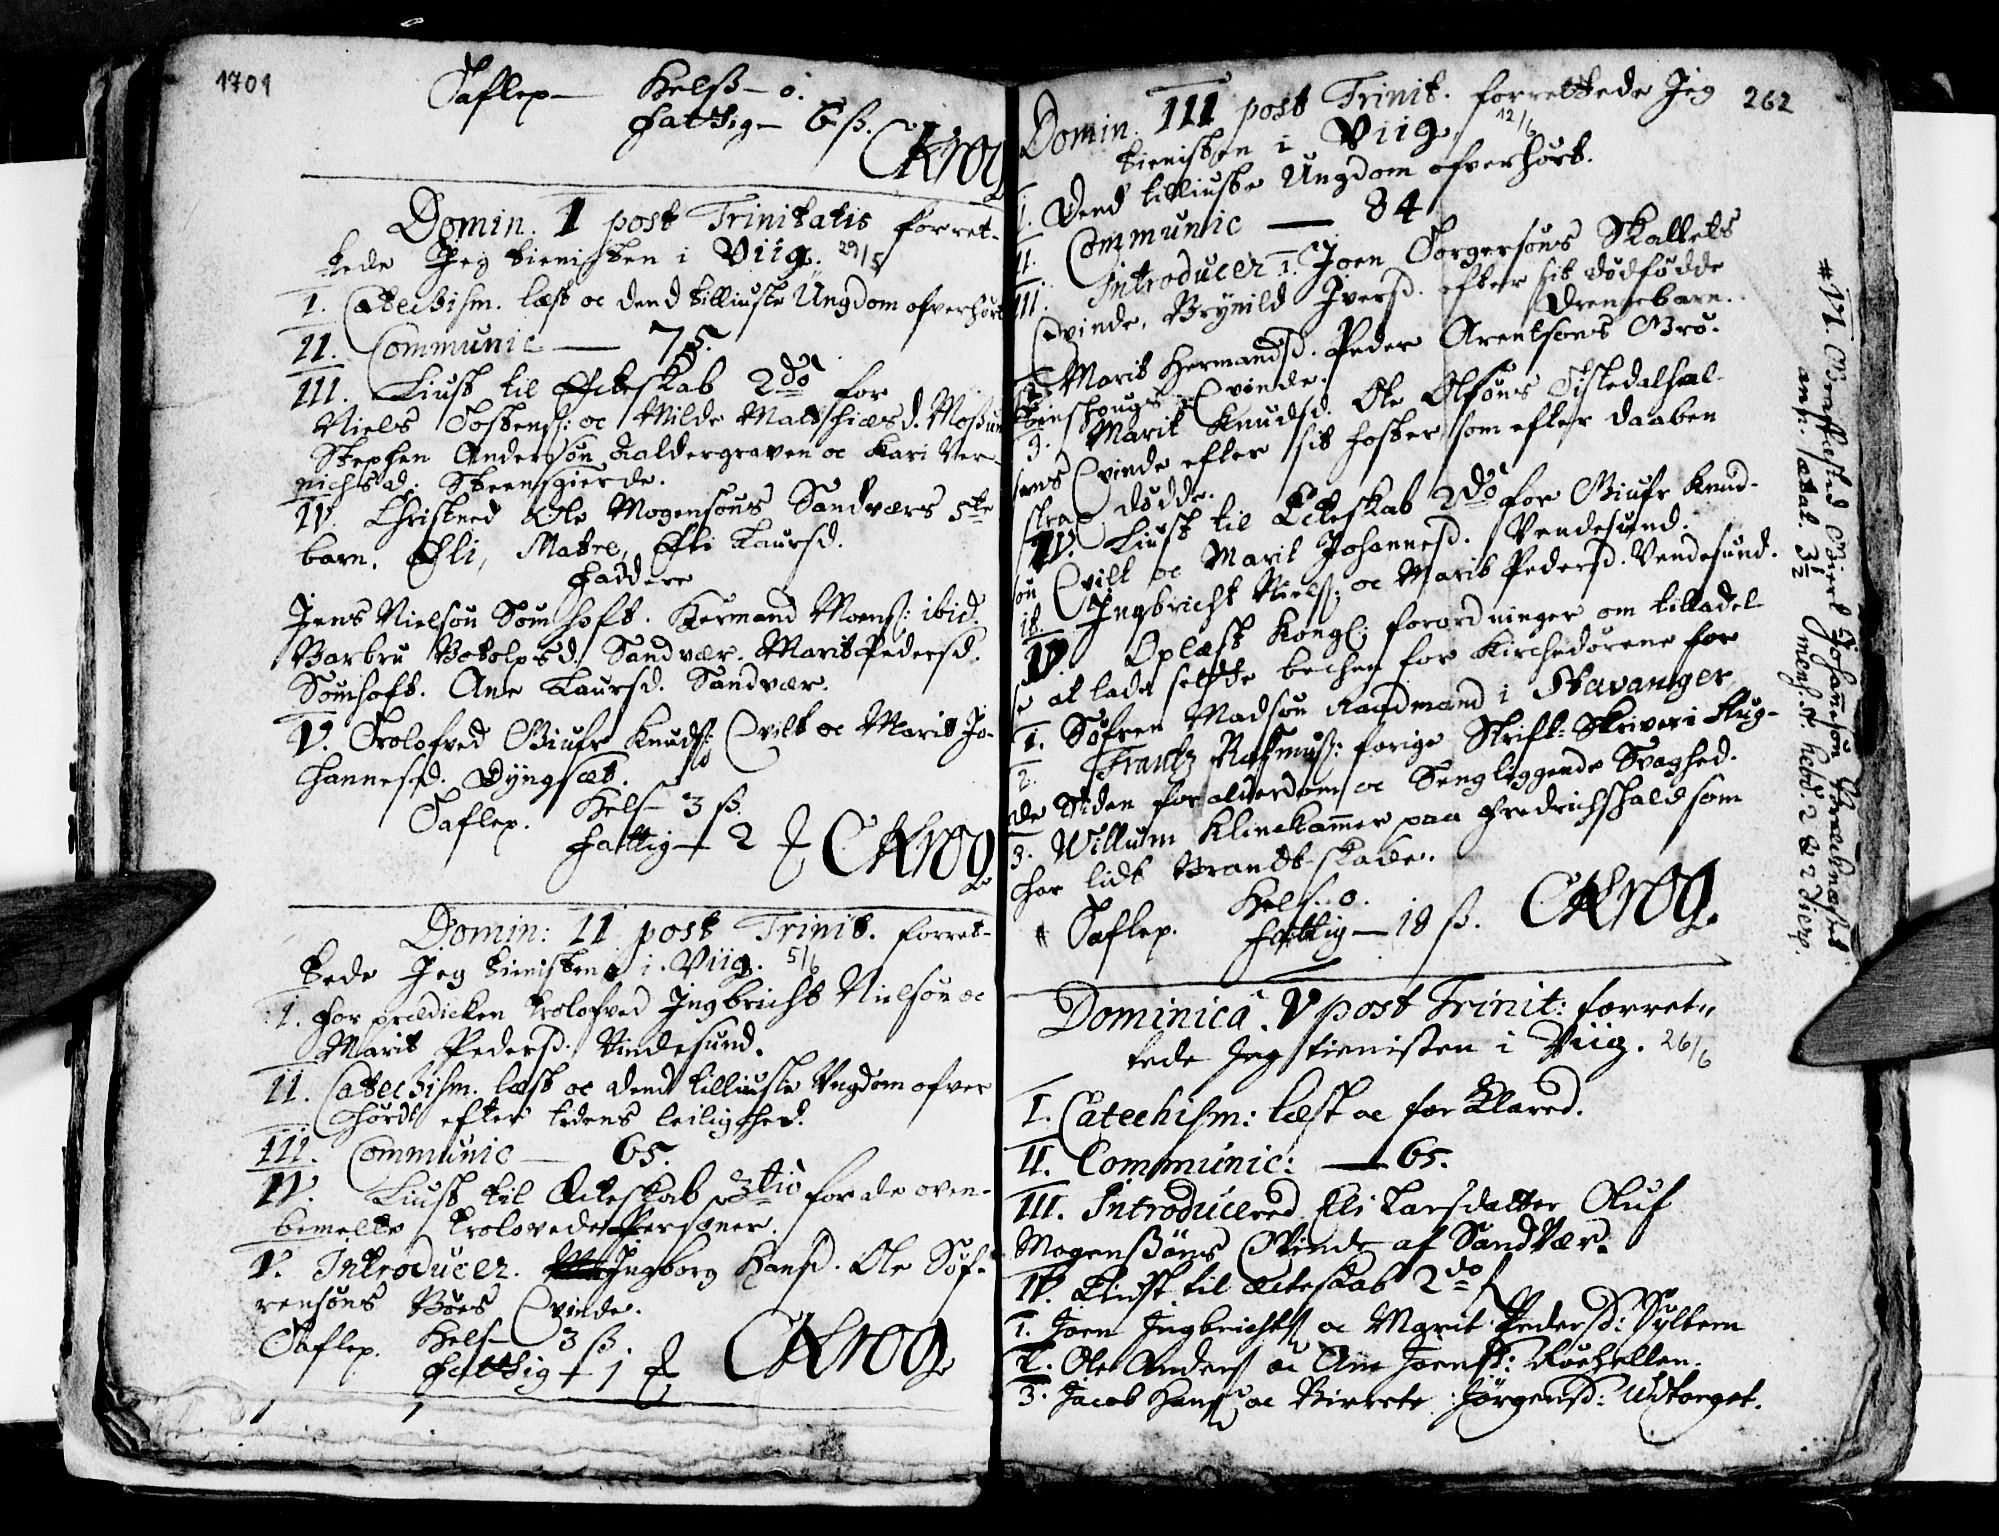 1701
Taflep— Kels— 0.
Fattig— 6 ß.
CKrog
Domin. I post Trinitatis forret-
tede Jeg tienisten i Viig. 29/5
I. Catechism. læst oc dend tilliuste Ungdom ofverhørt
II. Communic — 75.
III. Liust til Ecteskab 2do for
Niels Tostens: oc Milde Mattschiæsd.
Stephen Andersøn Kaldergraven oc Kari Ver-
nichsd: Steensgierde.
IV. Christned Ole Mogensøns Sandværs 5te
barn. Eli, Matre, Elli Laursd.
Faddere
Jens Nielsøn Sømhoft. Hermand Moens: ibid.
Barbru Botolpsd. Sandvær. Marit Pedersd.
Sømhoft. Ane Laursd. Sandvær.
V. Trolofved Giufr Knuds: Qvilt oc Marit Jo-
hannesd. Dyngsæt.
Taflep. Kels— 3 ß.
Fattig— 2
CKrog
Domin: II post Trinit. forret-
tede Jeg tienisten i Viig. 5/6
I. For prædicken trolofved Ingbricht Nielsøn oc
Marit Pedersd: Vindesund.
II. Catechism. læst oc dend tilliuste Ungdom ofver
hørdt efter tidens leilighed.
III. Communic — 65.
IV. Liust til Ecteskab 3tio for de oven-
bemelte trolovede Personer.
V. Introducer. Ingborg Hansd. Ole Søf-
rensøns Bøes Qvinde.
Taflep. Kels— 3 ß
Fattig— 1
CKrog
262
Domin. III post Trinit. forrettede Jeg
tienisten i Viig. 12/6
I. Dend tilliuste Ungdom ofverhørt.
II. Communic — 84
III. Introducer 1. Joen Torgersøns Skallets
Qvinde, Brynild Iversd. efter sit dødfødde
Drengebarn.
2. Marit Hermandsd. Peder Arentsøns Brø-
tenshougs Qvinde.
3. Marit Knudsd. Ole Olsøns Tisledalhal-
sens Qvinde efter sit foster som efter daaben
strax døde.
IV. Liust til Ecteskab 2do for Giufr Knud-
søn Qvilt oc Marit Johannesd. Vendesund.
it. Ingbricht Niels: oc Marit Pedersd. Vendesund.
V. Oplæst Kongl: forordninger om tilladel-
se at lade sette becken for Kirchedørene for
1. Søfren Madsøn Raadmand i Stavanger
2. Frantz Rasmus: forige Skrift-Skriver i Aug-
de Siden for alderdom oc Sengliggende Svaghed.
3. Willum Klinckamer paa Fredrichshald som
har lidt Brandt-skade.
# Taflep. Kels. 0.
Fattig— 18 ß.
CKrog.
# VI. Græffested Siert Johansøn
ann. ætat. 3½ mens. & hebd. 2 & 2 dierp.
Dominica V post Trinit: forret,,
tede Jeg tienisten i Viig. 26/6
I. Catechism: læst oc forklared.
II. Communic: — 65.
III. Introducered Elli Larsdatter Oluf
Mogensøns Qvinde af Sandvær.
IV. Liust til Ecteskab 2do f
1. Joen Ingbrichts oc Marit Pedersd: Sÿltern
2. Ole Anders oc Ane Joensd: Røehellen.
3. Jacob Hans oc Birrete Jørgensd: Udtorget.